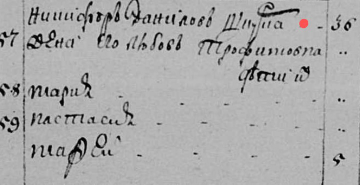 Никифоръ Даниловъ Шиpма 36
57 Жена Его Любовь Трофимовна "
дѣтий
58 Мария "
59 Настасия "
Марѳей 5